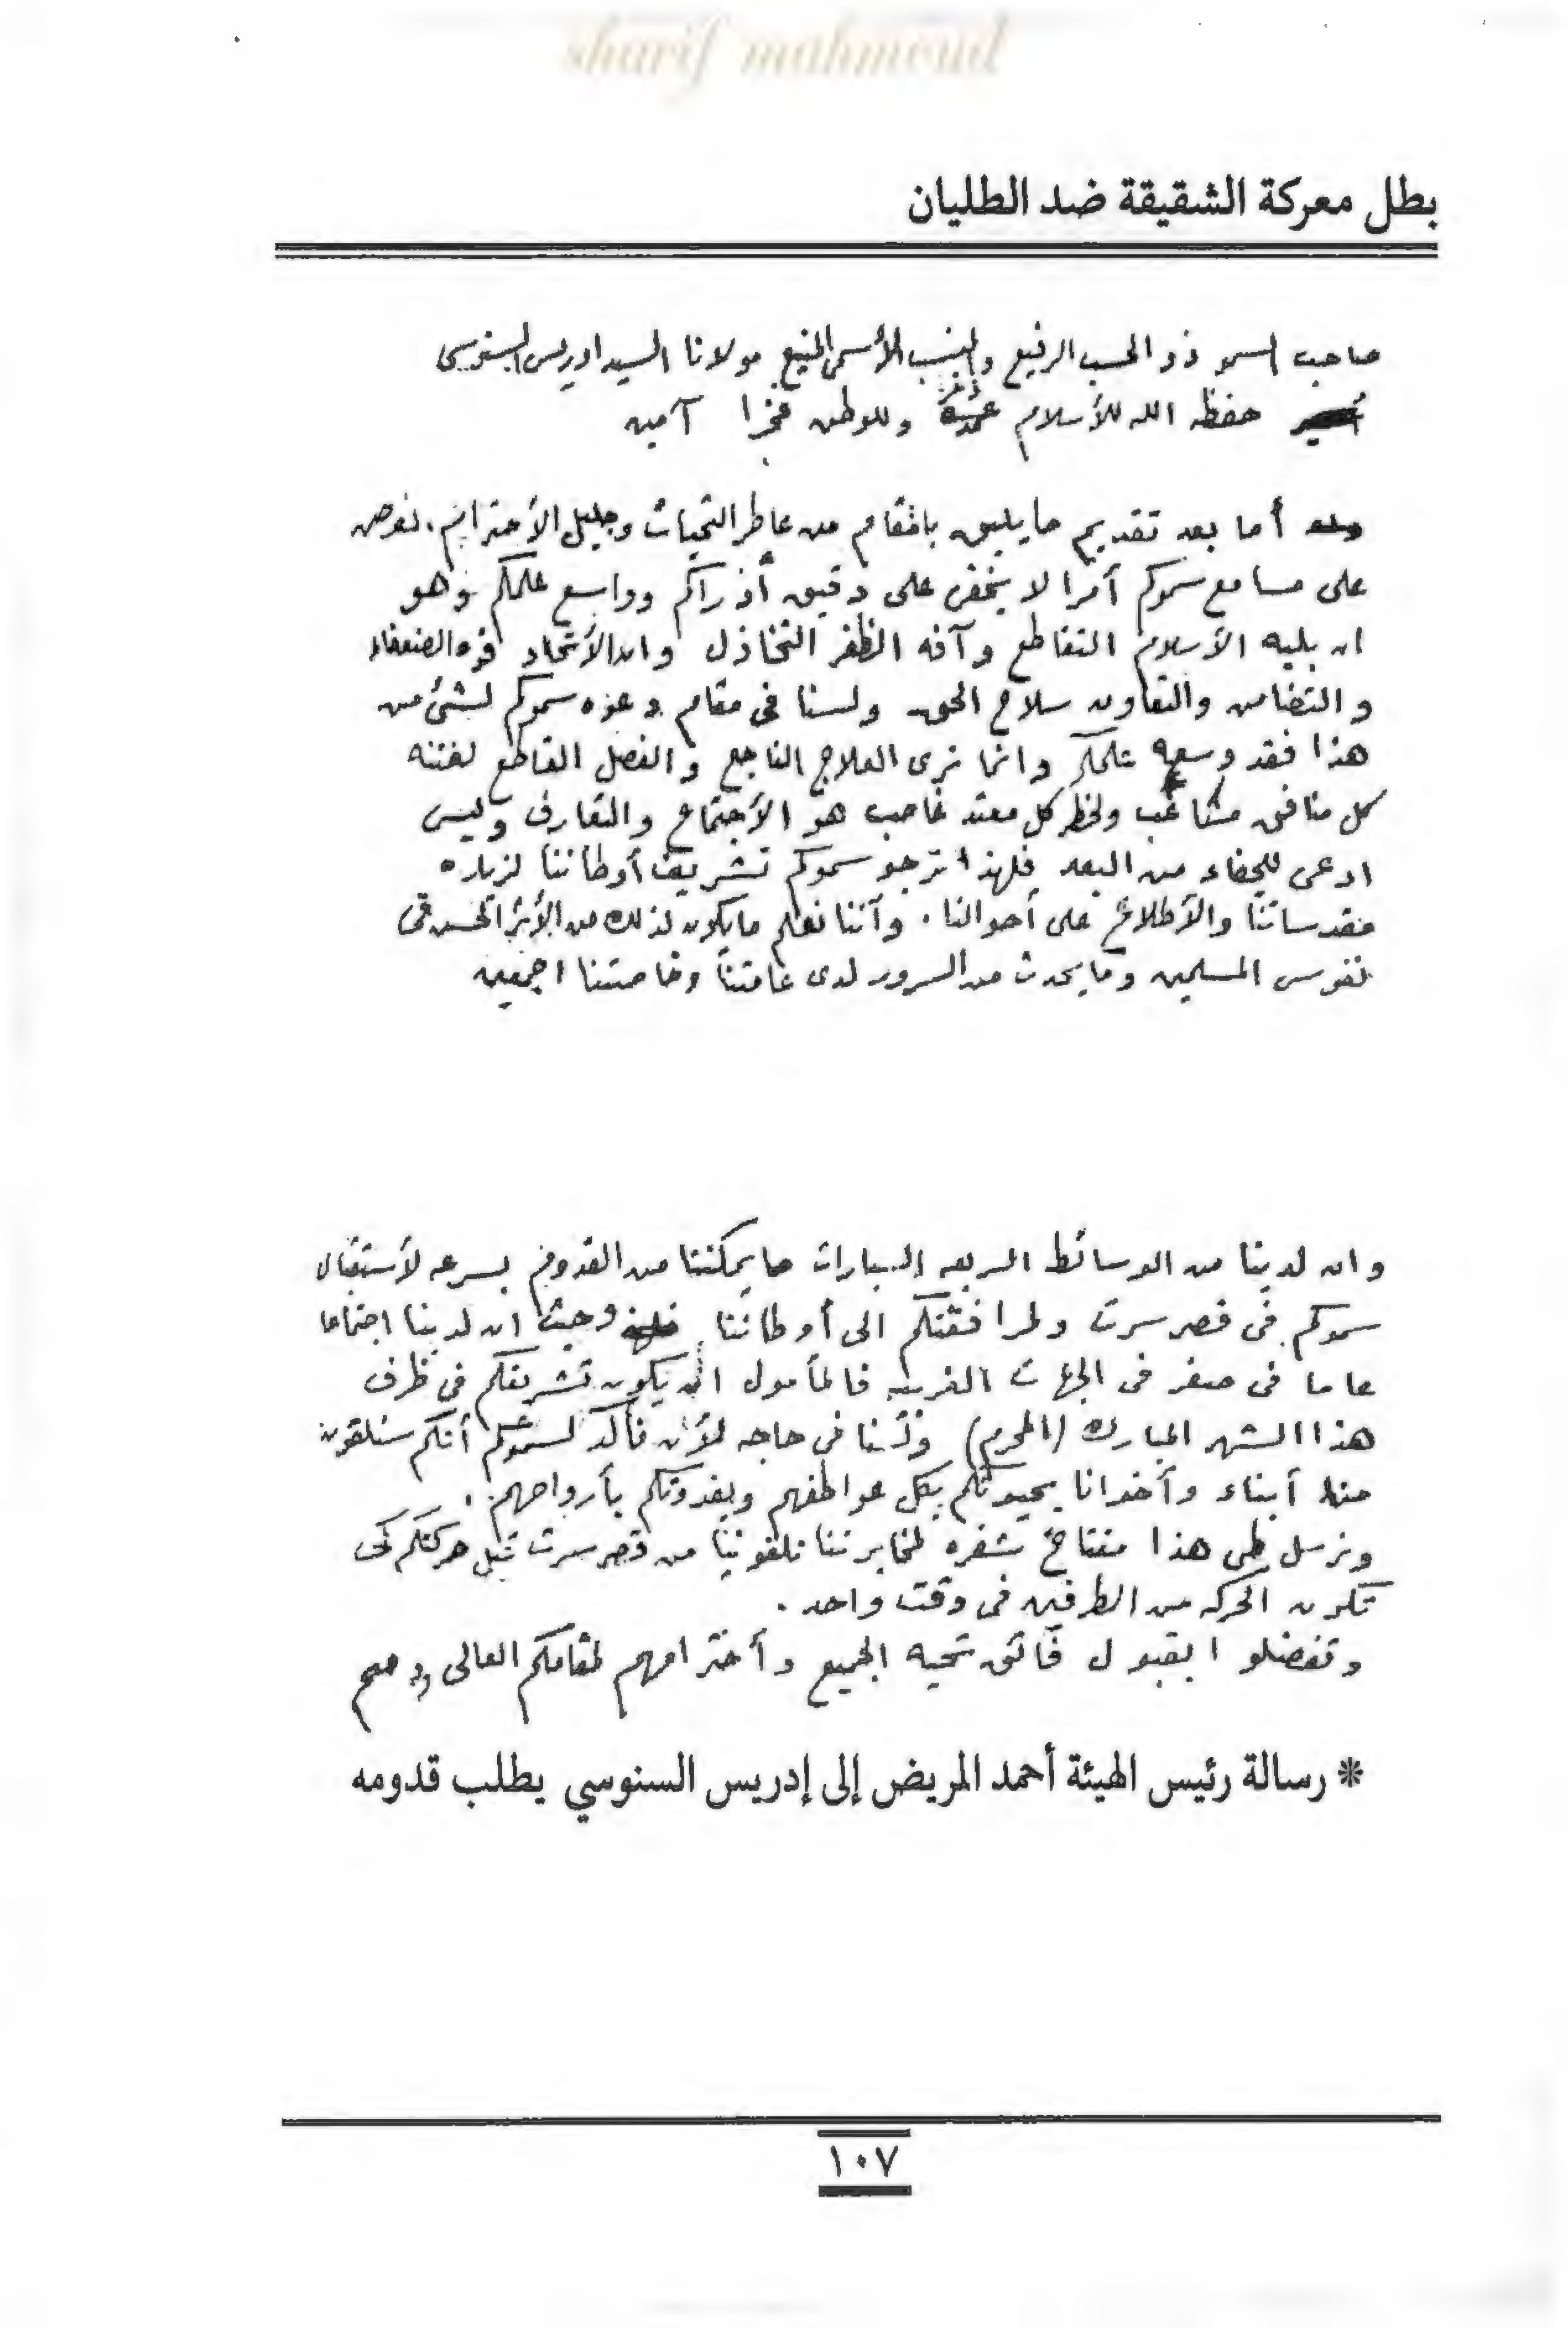 sharif mahmoud
بطل معركة الشقيقة ضد الطليان
صاحب السمو ذو الحسب الرفيع والنسب الأسمى المنيع مولانا السيد ادريس السنوسى
حفظه الله للأسلام وللوطن فخرا آمين
أما بعد تقديم ما يليق بالمقام من عاطر التحيات وجليل الأحترام. نعرض
على مسامع سموكم أمرا لا يخفى على دقيق أدراكم وواسع علمكم وهو
ان بليه الأسلام التقاطع وآفه الظفر التخاذل وان الأتحاد قوه الضعفاء
والتضامن والتعاون سلاح الحق ولسنا فى مقام دعوه سموكم لشئ من
هذا فقد وسعه علمكم وانما نرى العلاج الناجع والفصل القاطع لفتنه
كل منافق مشاغب ولخطر كل معتد غاصب هو الأجتماع والتعارف وليس
ادعى للجفاء من البعد فلهذا نرجو سموكم تشريف أوطاننا لزياره
مقدساتنا والأطلاع على أحوالنا. وأننا نعلم ما يكون لذلك من الأثر الحسن فى
نفوس المسلمين وما يحدث من السرور لدى عامتنا وخاصتنا اجمعين
وان لدينا من الوسائط السريعه السيارات ما يمكننا من القدوم بسرعه لأستقبال
سموكم فى قصر سرت ولمرافقتكم الى أوطاننا وحيث ان لدينا اجتماعا
عاما فى صفر فى الجهات الغربيه فالمأمول ان يكون تشريفكم فى ظرف
هذا الشهر المبارك (المحرم) ولسنا فى حاجه لأن نأكد لسموكم أنكم ستلقون
منا أبناء وأخوانا يحيونكم بكل عواطفهم ويفدونكم بأرواحهم.
ونرسل طى هذا مفتاح شفره لمخابرتنا تلفونيا من قصر سرت قبل حركتكم لكى
تكون الحركه من الطرفين فى وقت واحد.
وتفضلوا بقبول فائق تحيه الجميع وأحترامهم لمقامكم العالى
* رسالة رئيس الهيئة أحمد المريض إلى إدريس السنوسي يطلب قدومه
١٠٧